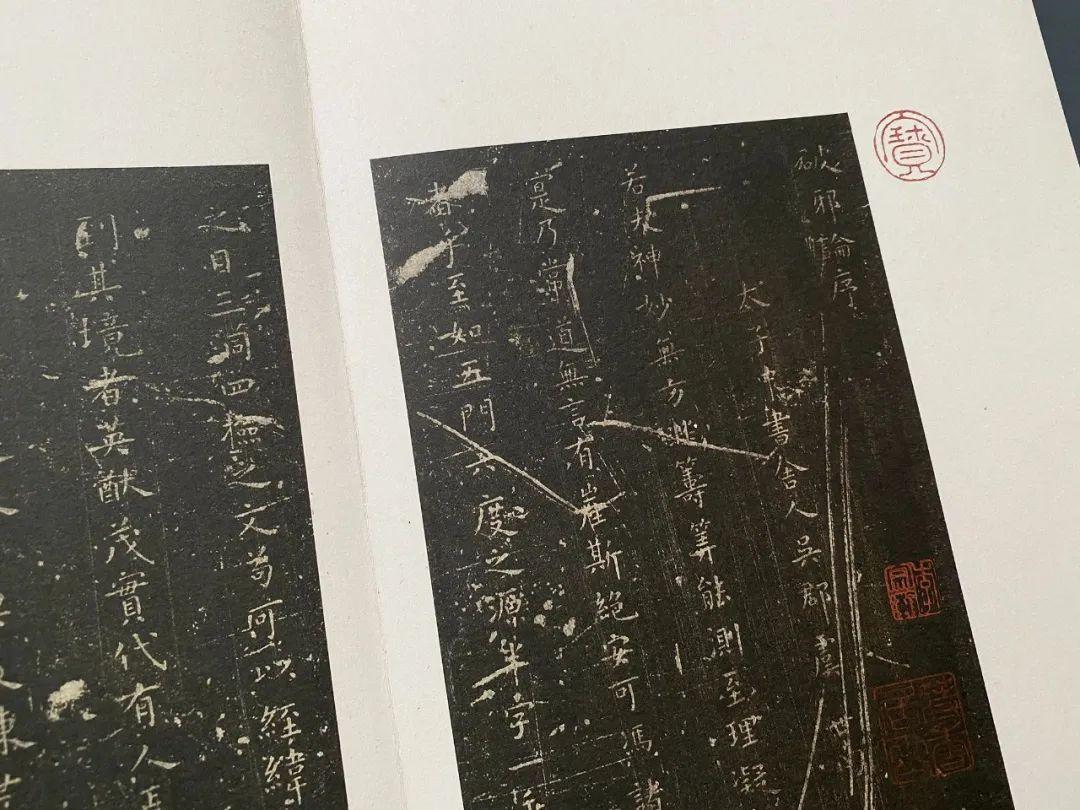 寶
破邪論序
太子中書舍人吳郡虞世
若夫神妙無方非籌筭能測至理凝
寔乃常道無言有崖斯絕安可馮諸
者乎至如五門六度之源半字一
之目三洞四檢之文苟可以經緯
到其境者英猷茂實代有人